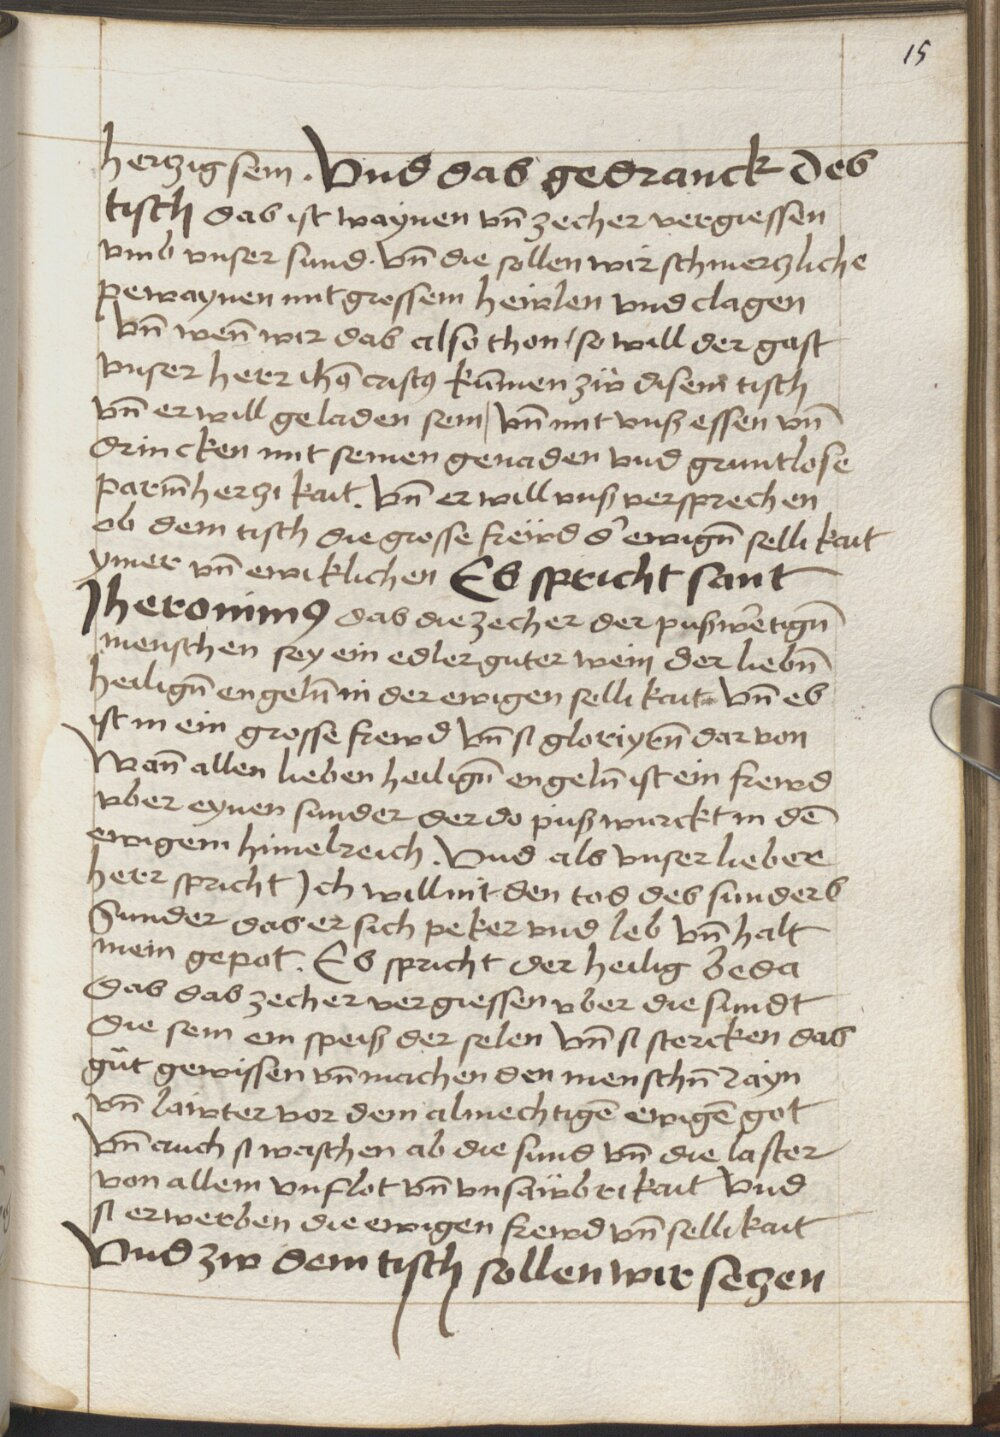 15
hertzig sein. Und das gedranck des
tisch das ist waynen vn̄ zecher vergiessen
vmb vnser sund. vn̄ die sollen wir schmertzliche
pewaynen mit grossem heẅlen vnd clagen
Vn̄ wen̄ wir das also thon / so will der gast
vnser herr ihō cristꝰ kūmen zẅ disem tisch
vn̄ er will geladen sein / vn̄ mit vnß essen vn̄
drincken mit seinen genaden vnd gruntlose
parm̄hertzi kait. vn̄ er will vnß versprechen
ob dem tisch die grosse freẅd d' ewign̄ selli kait
ymer vn̄ ewiklichen Es spricht sant
Jheronimꝰ das die zecher der pußwertign̄
menschen sey ein edler guter wein der liebn̄
heilign̄ engeln̄ in der ewigen selli kait vn̄ es
ist in ein grosse frewd vn̄ si gloriyrn̄ dar von
Wan̄ allen lieben heilign̄ engeln̄ ist ein frewd
vber eynen sunder der do puß wurckt in dē
ewigem himelreich. Vnd als vnser lieber
herr spricht Ich will nit den tod des sunders
Sunder das er sich peker vnd leb vn̄ halt
mein gepot. Es spricht der heilig beda
das das zecher vergiessen vber die sundt
die sein ein speiß der selen vn̄ si stercken das
gůt gewissen vn̄ machen den menschn̄ rayn
vn̄ laẅter vor dem almechtigē ewigē got
vn̄ auch si waschen ab die sund vn̄ die laster
von allem vnflot vn̄ vnsaẅbrikait Vnd
si erwerben die ewigen frewd vn̄ sellikait
Vnd zw dem tisch sollen wir setzen